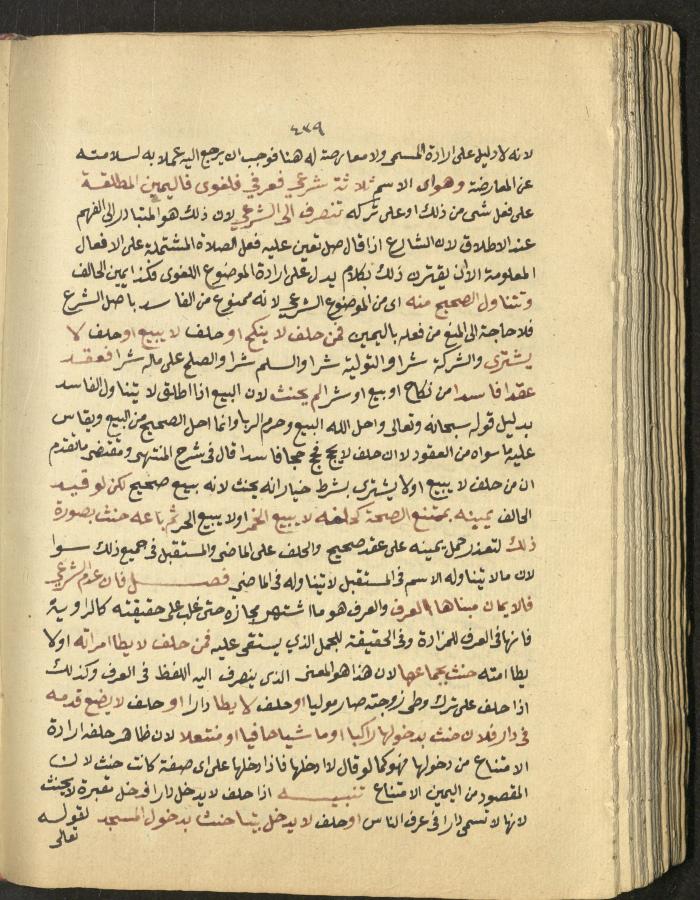 ٤٣٩
لانه لا دليل على ارادة المسمى ولا معارضة له هنا فوجب ان يرجع اليه عملا به لسلامته
عن المعارضة وهو اى الاسم ثلاثة شرعي فعرفي فلغوى فاليمين المطلقة
على فعل شى من ذلك او على تركه تنصرف الى الشرعي لان ذلك هو المتبادر الى الفهم
عند الاطلاق لان الشارع اذا قال صل تعين عليه فعل الصلاة المشتملة على الافعال
المعلومة الا ان يقترن ذلك بكلام يدل على ارادة الموضوع اللغوى فكذا يمين الحالف
وتتناول الصحيح منه اى من الموضوع الشرعي لانه ممنوع من الفاسد باصل الشرع
فلا حاجة الى المنع من فعله باليمين فمن حلف لا ينكح او حلف لا يبيع او حلف لا
يشترى والشركة شرا والتولية شرا والسلم شرا والصلح على مال شرا فعقد
عقدا فاسدا من نكاح او بيع او شرا لم يحنث لان البيع اذا اطلق لا يتناول الفاسد
بدليل قوله سبحانه وتعالى واحل الله البيع وحرم الربا وانما احل الصحيح من البيع ويقاس
عليه ما سواه من العقود لا ان حلف لا يحج فحج حجا فاسدا قال فى شرح المنتهى ومقتضى ما تقدم
ان من حلف لا يبيع او لا يشترى بشرط خيار انه يحنث لانه بيع صحيح لكن لو قيد
الحالف يمينه بممتنع الصحة كحلفه لا يبيع الخمر او لا يبيع الحر ثم باعه حنث بصورة
ذلك لتعذر حمل يمينه على عقد صحيح والحلف على الماضى والمستقبل فى جميع ذلك سوا
لان ما لا يتناوله الاسم فى المستقبل لا يتناوله فى الماضى فصل فان عدم الشرعي
فالايمان مبناها العرف والعرف هو ما اشتهر مجازه حتى غلب على حقيقته كالراوية
فانها فى العرف للمزادة وفى الحقيقة للجمل الذي يستقى عليه فمن حلف لا يطا امراته او لا
يطا امته حنث بجماعها لان هذا هو المعنى الذى ينصرف اليه اللفظ فى العرف وكذلك
اذا حلف على ترك وطى زوجته صار موليا او حلف لا يطا دارا او حلف لا يضع قدمه
فى دار فلان حنث بدخولها راكبا او ماشيا حافيا او منتعلا لان ظاهر حلفه ارادة
الامتناع من دخولها فهو كما لو قال لا ادخلها فاذا دخلها على اى صفة كانت حنث لان
المقصود من اليمين الامتناع تنبيه اذا حلف لا يدخل دارا فدخل مقبرة لا يحنث
لانها لا تسمى دارا فى عرف الناس او حلف لا يدخل بيتا حنث بدخول المسجد لقوله
تعالى